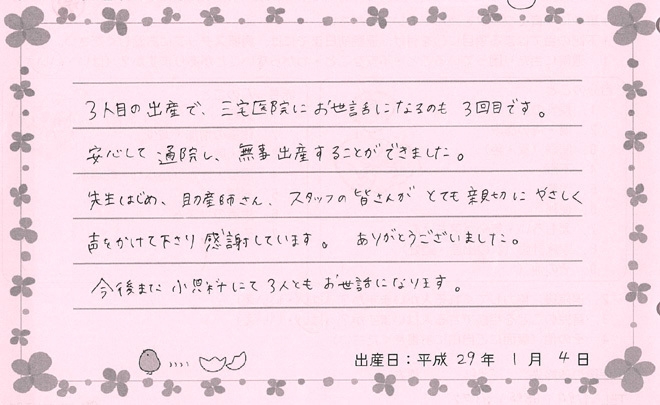 3人目の出産で、三宅医院にお世話になるのも3回目です。
安心して通院し、無事出産することができました。
先生はじめ、助産師さん、スタッフの皆さんがとても親切にやさしく
声をかけて下さり感謝しています。 ありがとうございました。
今後また小児科にて3人ともお世話になります。
出産日：平成29年1月4日